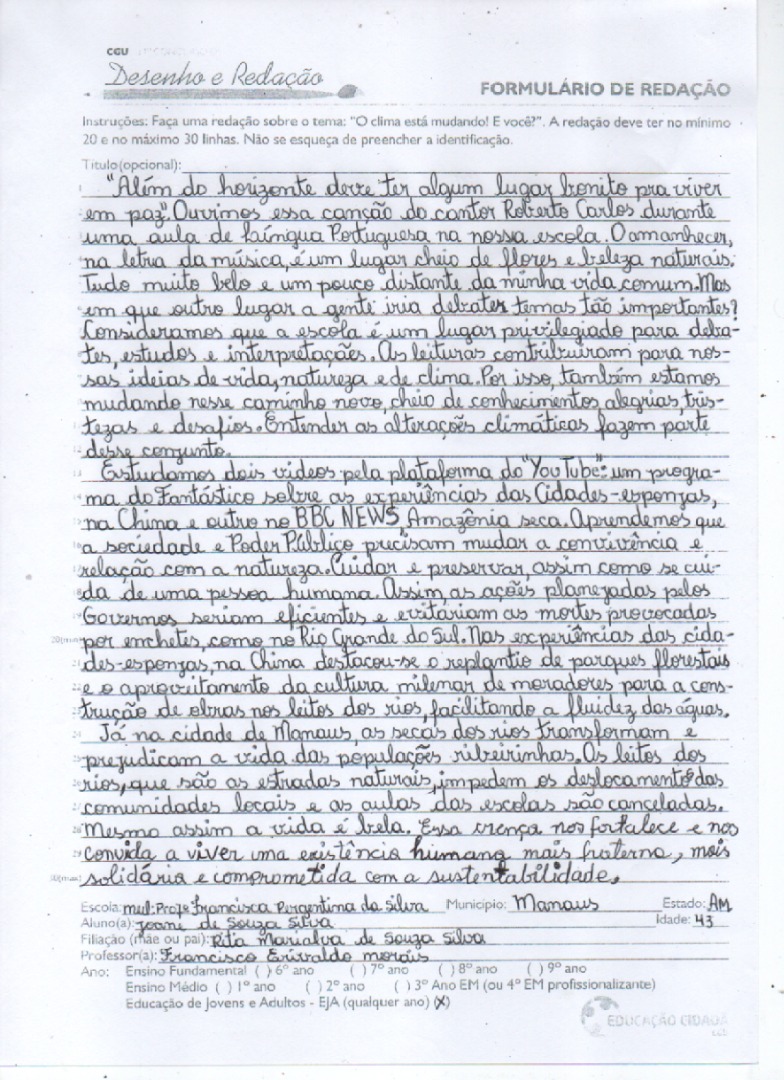 CGU
Desenho e Redação
FORMULÁRIO DE REDAÇÃO
Instruções: Faça uma redação sobre o tema: "O clima está mudando! E você?". A redação deve ter no mínimo
20 e no máximo 30 linhas. Não se esqueça de preencher a identificação.
Título(opcional):
"Além do horizonte deve ter algum lugar bonito pra viver
em paz". Ouvimos essa canção do cantor Roberto Carlos durante
uma aula de Laíngua Portuguesa na nossa escola. O amanhecer,
na letra da música, é um lugar cheio de flores e beleza naturais.
Tudo muito belo e um pouco distante da minha vida comum. Mas
em que outro lugar a gente iria debater temas tão importantes?
Consideramos que a escola é um lugar privilegiado para deba-
tes, estudos e interpretações. As leituras contribuiram para nos-
sas ideias de vida, natureza e de clima. Por isso, também estamos
mudando nesse caminho novo, cheio de conhecimentos alegrias, tris-
tezas e desafios. Entender as alterações climáticas fazem parte
desse conjunto.
Estudamos dois videos pela plataforma do "YouTube": um progra-
ma do Fantástico sobre as experiências das Cidades-esponjas,
na China e outro no BBC NEWS, Amazônia seca. Aprendemos que
a sociedade e Poder Público precisam mudar a convivência e
relação com a natureza. Cuidar e preservar, assim como se cui-
da de uma pessoa humana. Assim, as ações planejadas pelos
Governos seriam eficientes e evitariam as mortes provocadas
por enchetes, como no Rio Grande do Sul. Nas experiências das cida-
des-esponjas, na China destacou-se o replantio de parques florestais
e o aproveitamento da cultura milenar de moradores para a cons-
trução de obras nos leitos dos rios, facilitando a fluidez das águas.
Já na cidade de Manaus, as secas dos rios transformam e
prejudicam a vida das populações ribeirinhas. Os leitos dos
rios, que são as estradas naturais, impedem os deslocamentos das
comunidades locais e as aulas das escolas são canceladas.
Mesmo assim a vida é bela. Essa crença nos fortalece e nos
convida a viver uma existência humana mais fraterna, mais
solidária e comprometida com a sustentabilidade.
Escola: mul: Profª Francisca Pergentina da Silva Município: Manaus Estado: AM
Aluno(a): Joane de Souza Silva Idade: 43
Filiação (mãe ou pai): Rita Marialva de Souza Silva
Professor(a): Francisco Erivaldo morais
Ano: Ensino Fundamental ( ) 6º ano ( ) 7º ano ( ) 8º ano ( ) 9º ano
Ensino Médio ( ) 1º ano ( ) 2º ano ( ) 3º Ano EM (ou 4º EM profissionalizante)
Educação de Jovens e Adultos - EJA (qualquer ano) (X)
EDUCAÇÃO CIDADÃ